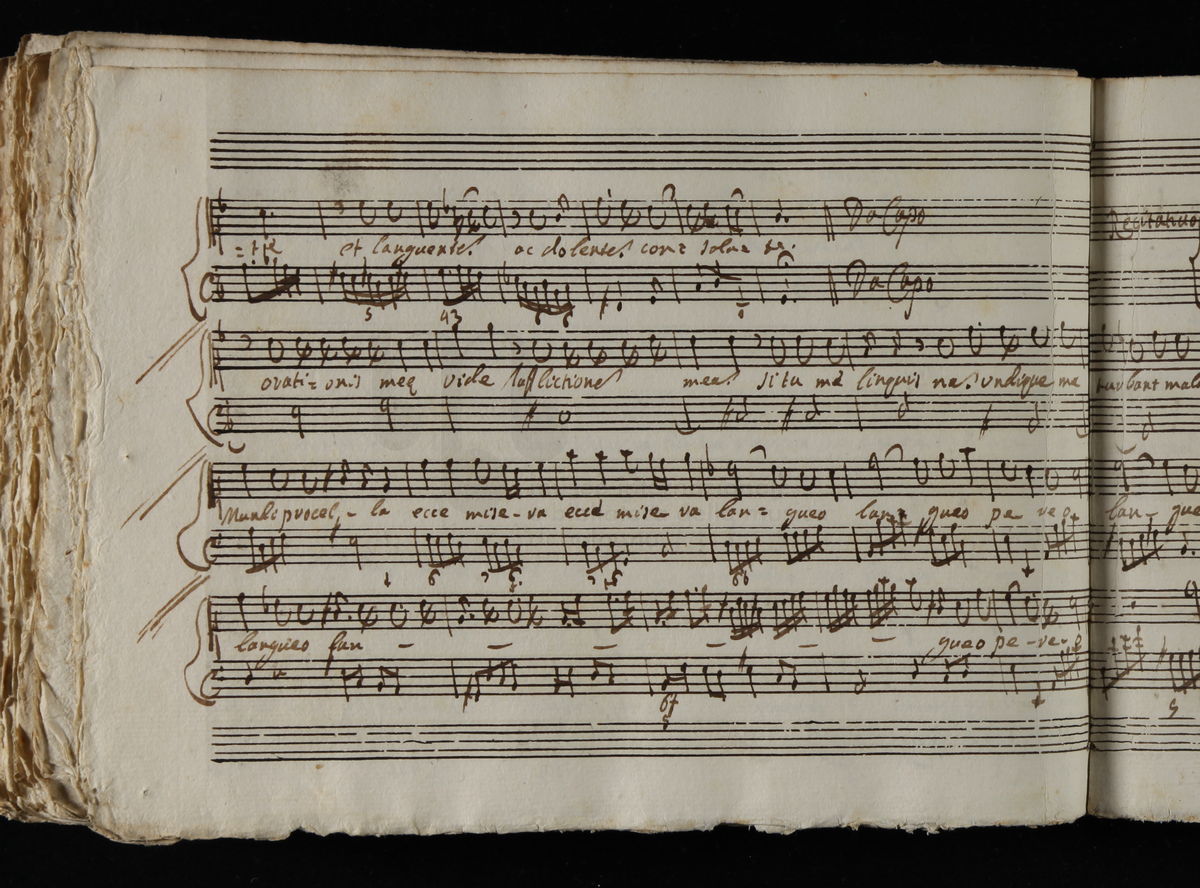 =tę et languentes ac dolentes con= sola= te. Da Capo Recitativo
Da Capo
5 43 6 6
orati= onis meę vide afflictiones meas si tu me linquis nas undique me turbant mala
Mundi procel,- la ecce mise-ra ecce mise ra lan= gueo lan= gueo pe re o lan- gue
6 5 66
langueo lan - - - - - - gueo pe-re-o
67 5